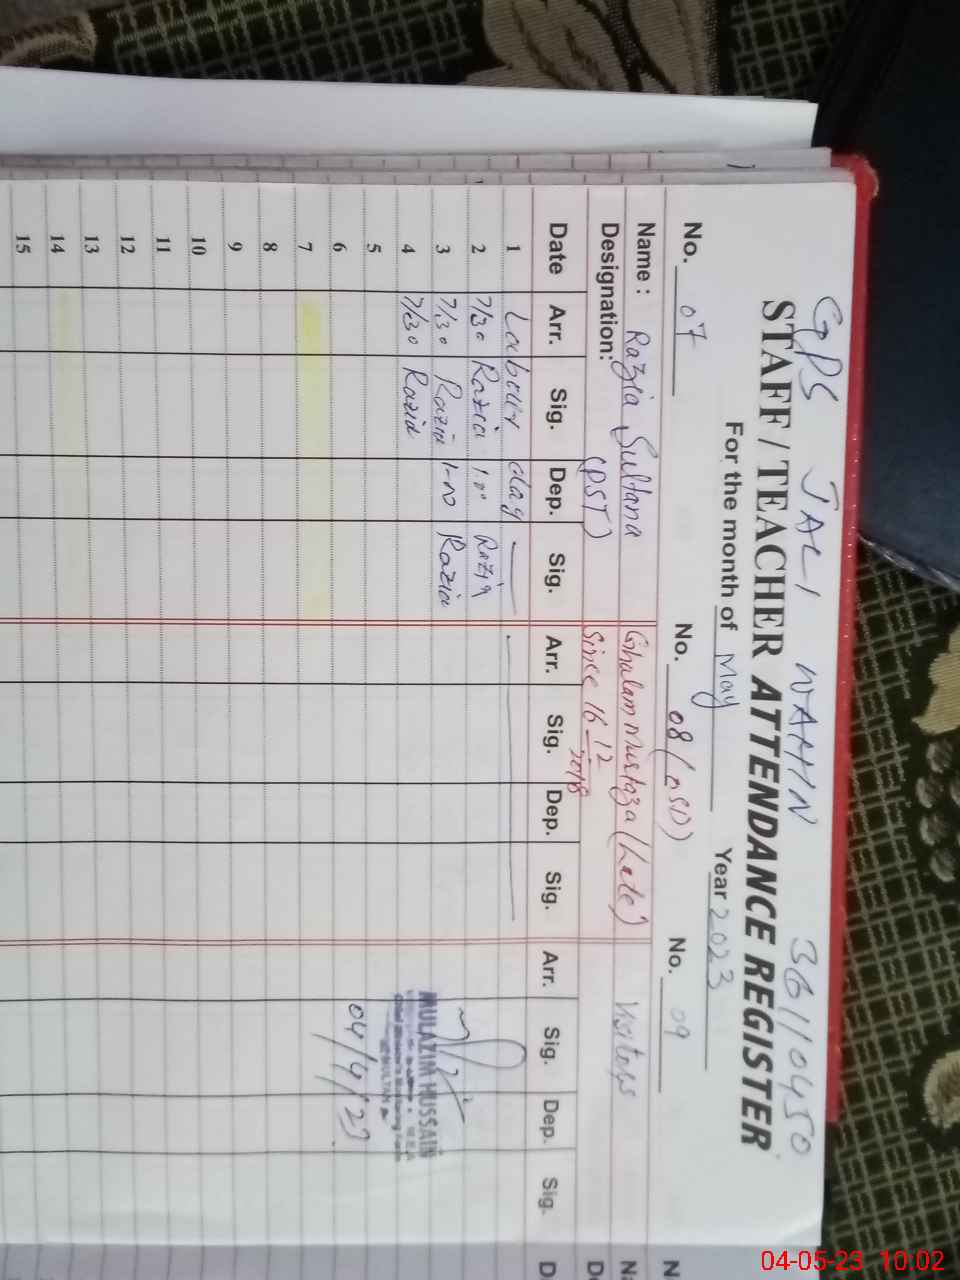 GPS JALI WAHIN 36110450
STAFF / TEACHER ATTENDANCE REGISTER
For the month of May Year 2023
No. 07 No. 08 (OSD) No. 09
Name : Razia Sultana Ghulam Murtaza (Late) Visitors
Designation: (PST) Since 16-12-2018
Date Arr. Sig. Dep. Sig. Arr. Sig. Dep. Sig. Arr. Sig. Dep. Sig.
1 Labour day
2 7/30 Razia 1:00 Razia
3 7/30 Razia 1-00 Razia
4 7/30 Razia
5
6
7
8
9
10
11
12
13
14
15
MULAZIM HUSSAIN
MULTAN
04/4/23
04-05-23 10:02